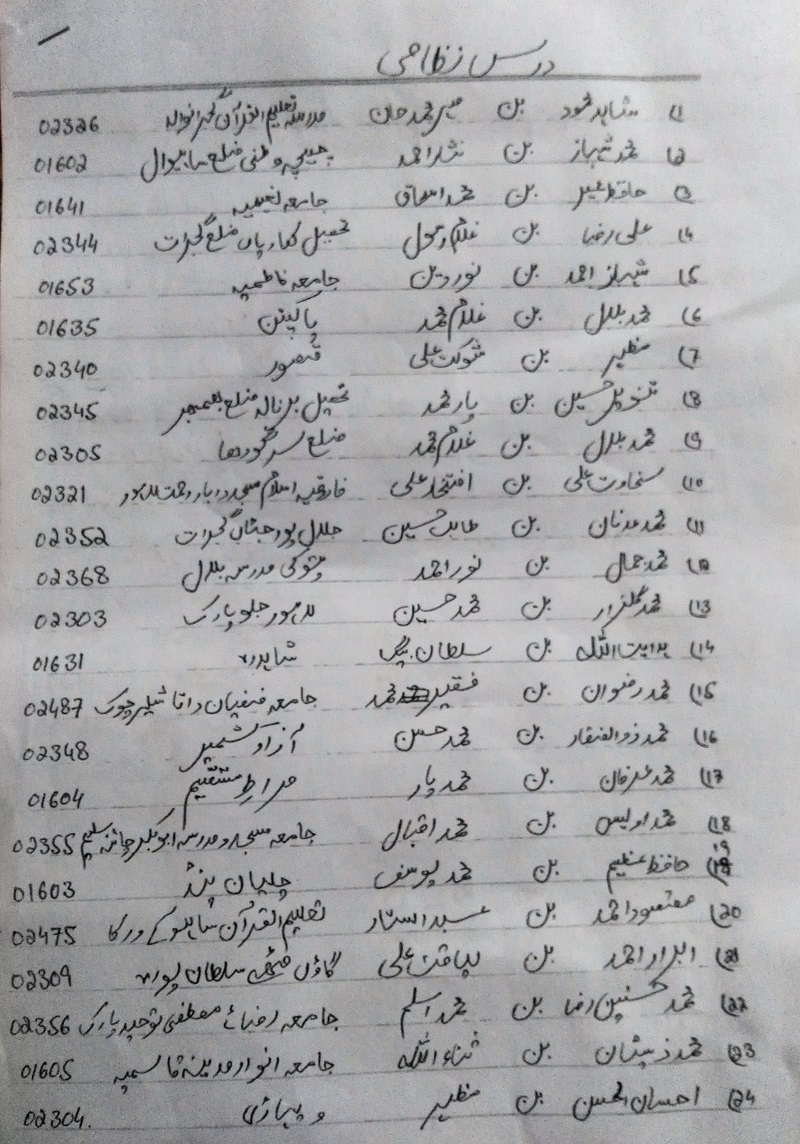 درس نظامی
1) شاہد محمود بن میر محمد خان مدرسہ تعلیم القرآن گجرانوالہ 02326
2) محمد شہباز بن نثار احمد چیچہ وطنی ضلع ساہیوال 01602
3) حافظ عمیر بن محمد اسحاق جامعہ نعیمیہ 01641
4) علی رضا بن غلام رسول تحصیل کھاریاں ضلع گجرات 02344
5) شہباز احمد بن نور دین جامعہ فاطمیہ 01653
6) محمد بلال بن غلام محمد پاکپتن 01635
7) مظہر بن شوکت علی قصور 02340
8) تنویر حسین بن یار محمد تحصیل برنالہ ضلع بھمبھر 02345
9) محمد بلال بن غلام محمد ضلع سرگودھا 02305
10) سخاوت علی بن افتخار علی فاروقیہ اسلام مسجد دربار لاہور 02321
11) محمد عدنان بن طالب حسین جلال پور جٹاں گجرات 02352
12) محمد جمال بن نور احمد پتوکی مدرسہ بلال 02368
13) محمد گلزار بن محمد حسین لاہور جلو پارک 02303
14) ہدایت اللہ بن سلطان بیگ شاہدرہ 01631
15) محمد رضوان بن فقیر محمد جامعہ داتا چوک 02487
16) محمد ذوالفقار بن محمد حسین آزاد کشمیر 02348
17) محمد عرفان بن محمد یار صراط مستقیم 01604
18) محمد اویس بن محمد اقبال جامعہ مسجد و مدرسہ ابوبکر سلیم 02355
19) حافظ عظیم بن محمد یوسف پنڈ 01603
20) مقصود احمد بن عبدالستار تعلیم القرآن 02475
21) ابرار احمد بن لیاقت علی گاؤں سلطان پورہ 02309
22) محمد حسنین رضا بن محمد اسلم جامعہ رضائے مصطفی توحید پارک 02356
23) محمد ذیشان بن ثناء اللہ جامعہ انوار مدینہ قاسمیہ 01605
24) احسان الحسن بن مظہر وہاڑی 02304